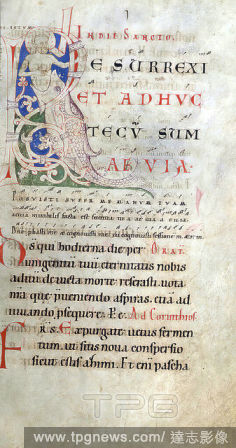 IN DIE SANCTO
RESURREXI
ET ADHUC
TECU SUM
AEVIA
POSUISTI SUPER ME MANUM TUAM
Ds qui hodierna die per ORAT.
unigenitum tuu eternitatis nobis
aditu devicta morte reserasti. vota
nra que pveniendo aspiras. etia ad
iuuando psequere. P. e. Ad Corinthios
FRS. Expurgate uetus fermen
tum. ut sitis noua conspersio
sicut estis azimi. Et eni pascha
TPG
www.tpgnews.com/達志影像